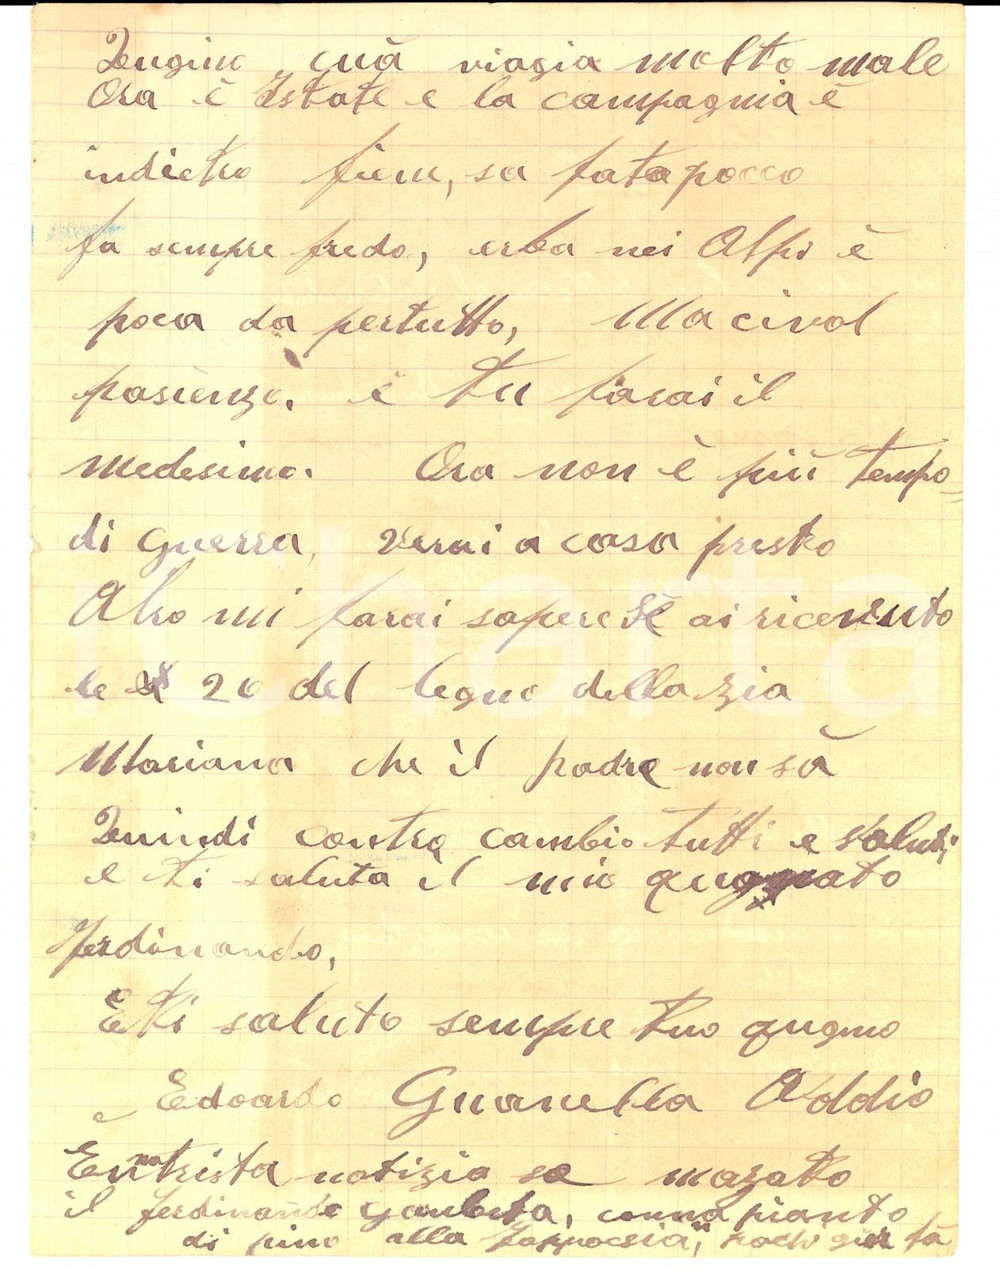 quà viagia molto male
Ora è Istate e la campagnia è
indietro fieni, sa fata pocco
fa sempre fredo, erba nei Alpi è
poca da pertutto, Ma ci vol
pasienze, e tu farai il
medesimo. Ora non è più tempo
di guerra, verai a casa presto
Altro mi farai sapere se ai ricevuto
le 20 del legno della zia
Mariana che il padre non sà
Quindi contro cambio tutti e saluti
e ti saluta il mio quggnato
Ferdinando,
E ti saluto sempre tuo qugnio
Edoardo Guanella Addio
E una trista notizia sa mazatto
il Ferdinando Gambeta, conna pianto
di pino alla